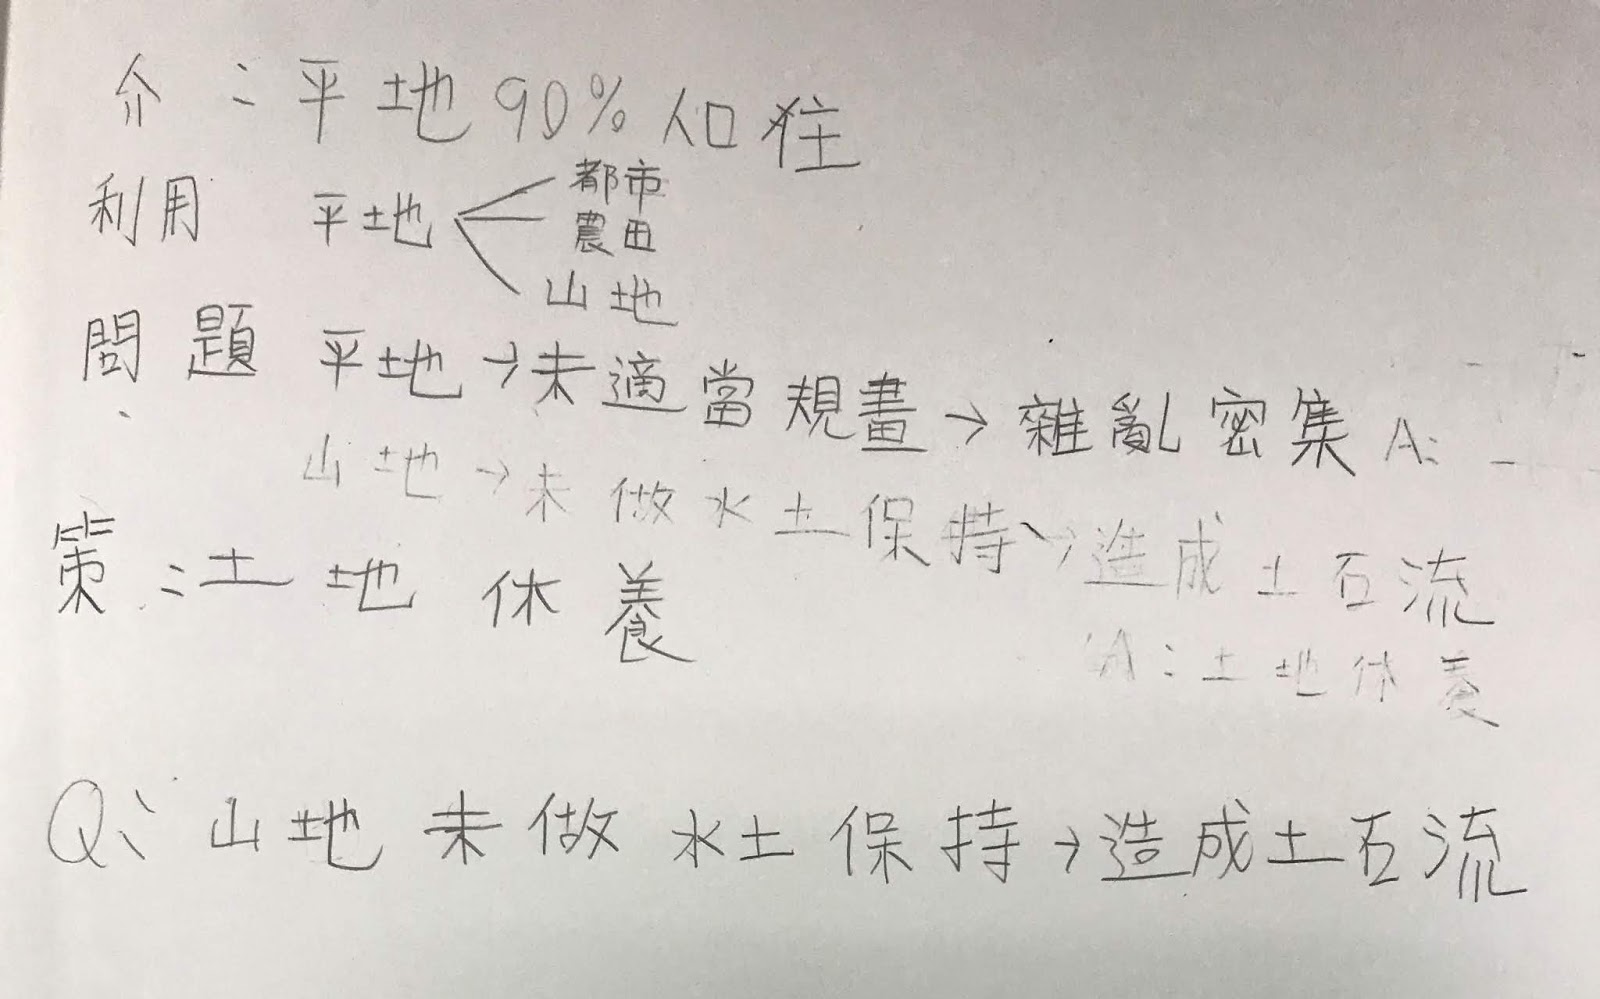 介：平地90%人口往
利用 平地 都市
農田
山地
問題 平地→未適當規畫→雜亂密集 A:
山地→未做水土保持→造成土石流
A:土地休養
策：土地休養
Q:山地未做水土保持→造成土石流